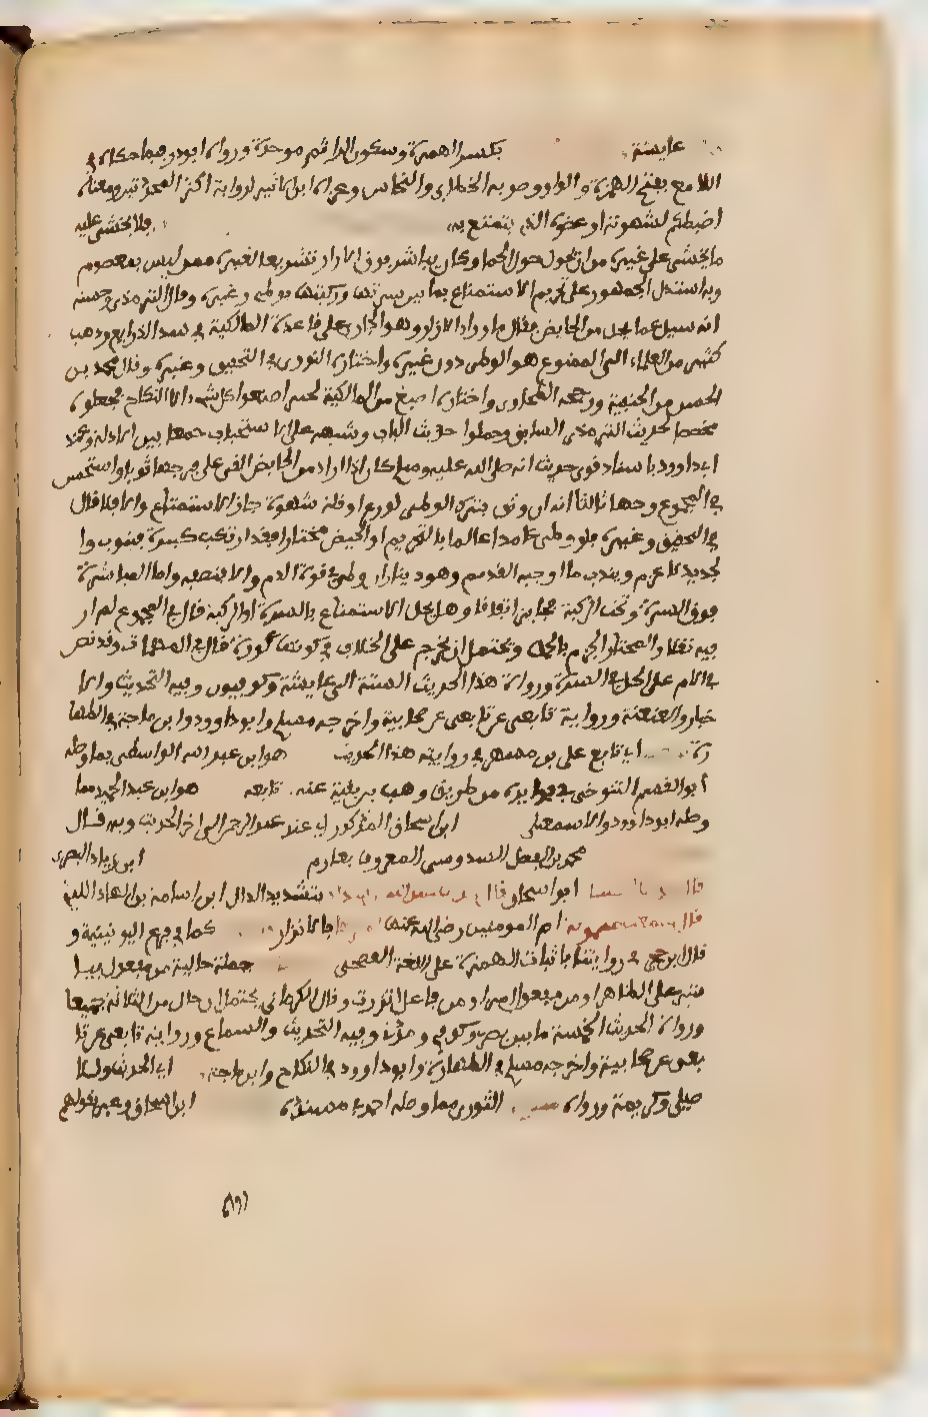 عايشة بكسر الهمزة وسكون الرا ثم موحدة ورواه ابو ذر فيما حكاه في
اللامع بفتح الهمزة والراء وصوبه الخطابي والنحاس وعزاه ابن الاثير لرواية اكثر المحدثين ومعناه
اضبطكم لشهوته او عضوه الذي يتمتع به فلا يخشى عليه
ما يخشى على غيره من ان يحول حول الحما وكان يباشر فوق الازار تشريعا لغيره ممن ليس بمعصوم
وبه استدل الجمهور على تحريم الاستمتاع بما بين سرتها وركبتها بوطي وغيره وقال الترمذي وحسنه
انه سيل عما يحل من الحايض فقال ما وراء الازار وهو الجاري على قاعدة المالكية في سد الذرايع وذهب
كثير من العلماء الى الممنوع هو الوطي دون غيره واختاره النووي في التحقيق وغيره وقال محمد بن
الحسن من الحنفية ورجحه الطحاوي واختاره اصبغ من المالكية لخبر اصنعوا كل شي الا النكاح فجعلوه
مخصصا لحديث الترمذي السابق وحملوا حديث الباب وشبهه على الاستحباب جمعا بين الادلة وعند
ابي داوود باسناد قوي حديث انه صلى الله عليه وسلم كان اذا اراد من الحايض القى على فرجها ثوبا واستحسن
في المجموع وجها ثالثا انه ان وثق بترك الوطي لورع او قلة شهوة جاز الاستمتاع والا فلا قال
في التحقيق وغيره فلو وطي عامدا عالما بالتحريم او الحيض مختارا فقد ارتكب كبيرة فيتوب وا
لجديد لا غرم ويندب ما اوجبه القديم وهو دينار ان وطي في قوة الدم والا بنصفه واما المباشرة
فوق السرة وتحت الركبة فجايز اتفاقا وهل يحل الاستمتاع بالسرة او الركبة قال في المجموع لم ار
فيه نقلا والمختار الجزم بالحل ويحتمل ان يخرج على الخلاف في كونهما عورة قال في المهمات وقد نص
في الام على الحل في السرة ورواة هذا الحديث الستة الى عايشة كوفيون وفيه التحديث والا
خبار والعنعنة ورواية تابعي عن تابعي عن صحابية واخرجه مسلم وابو داوود وابن ماجة في الطها
رة اي تابع علي بن مسهر في روايته هذا الحديث هو ابن عبد الله الواسطي بما وصله
ابو القسم التنوخي في فوايده من طريق وهب بن بقية عنه تابعه هو ابن عبد الحميد مما
وصله ابو داوود والاسمعيلي ابي اسحاق المذكور اي عند عبد الرحمن الى اخر الحديث وبه قال
محمد بن الفضل السدوسي المعروف بعارم ابن زياد البصري
قال ابو اسحاق قال بتشديد الدال ابن اسامة بن الهاد الليثي
قال ميمونة ام المومنين رضي الله عنها فاتزرت كما في فرع اليونينية و
قال ابن حجر في روايتنا باثبات الهمزة على اللغة الفصحى جملة حالية من مفعول يبا
شر على الظاهر او من مفعول امر او من فاعل اتزرت وقال الكرماني يحتمل ان حال من الثلاثة جميعا
ورواة الحديث الخمسة ما بين بصري وكوفي ومدني وفيه التحديث والسماع ورواية تابعي عن تا
بعي عن صحابية واخرجه مسلم في الطهارة وابو داوود في النكاح وابن ماجة اي الحديث وللا
صيلي وكريمة ورواه الثوري مما وصله احمد في مسنده ابي اسحاق وعبر بقولهم